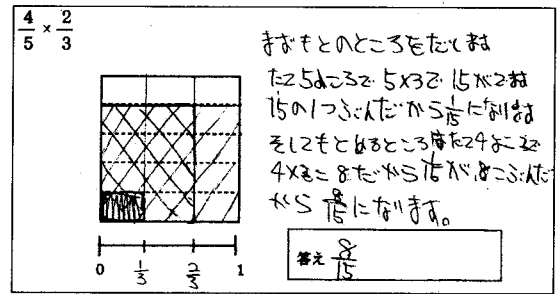 4/5 × 2/3
まずもとのところをだします
たて5よこ3で 5×3で 15がでます
15の1つぶんだから 1/15 になります
そしてもとめるところはたて4よこ2で
4×2= 8だから 1/15が 8こぶんだ
から 8/15 になります。
0 1/3 2/3 1
答え 8/15